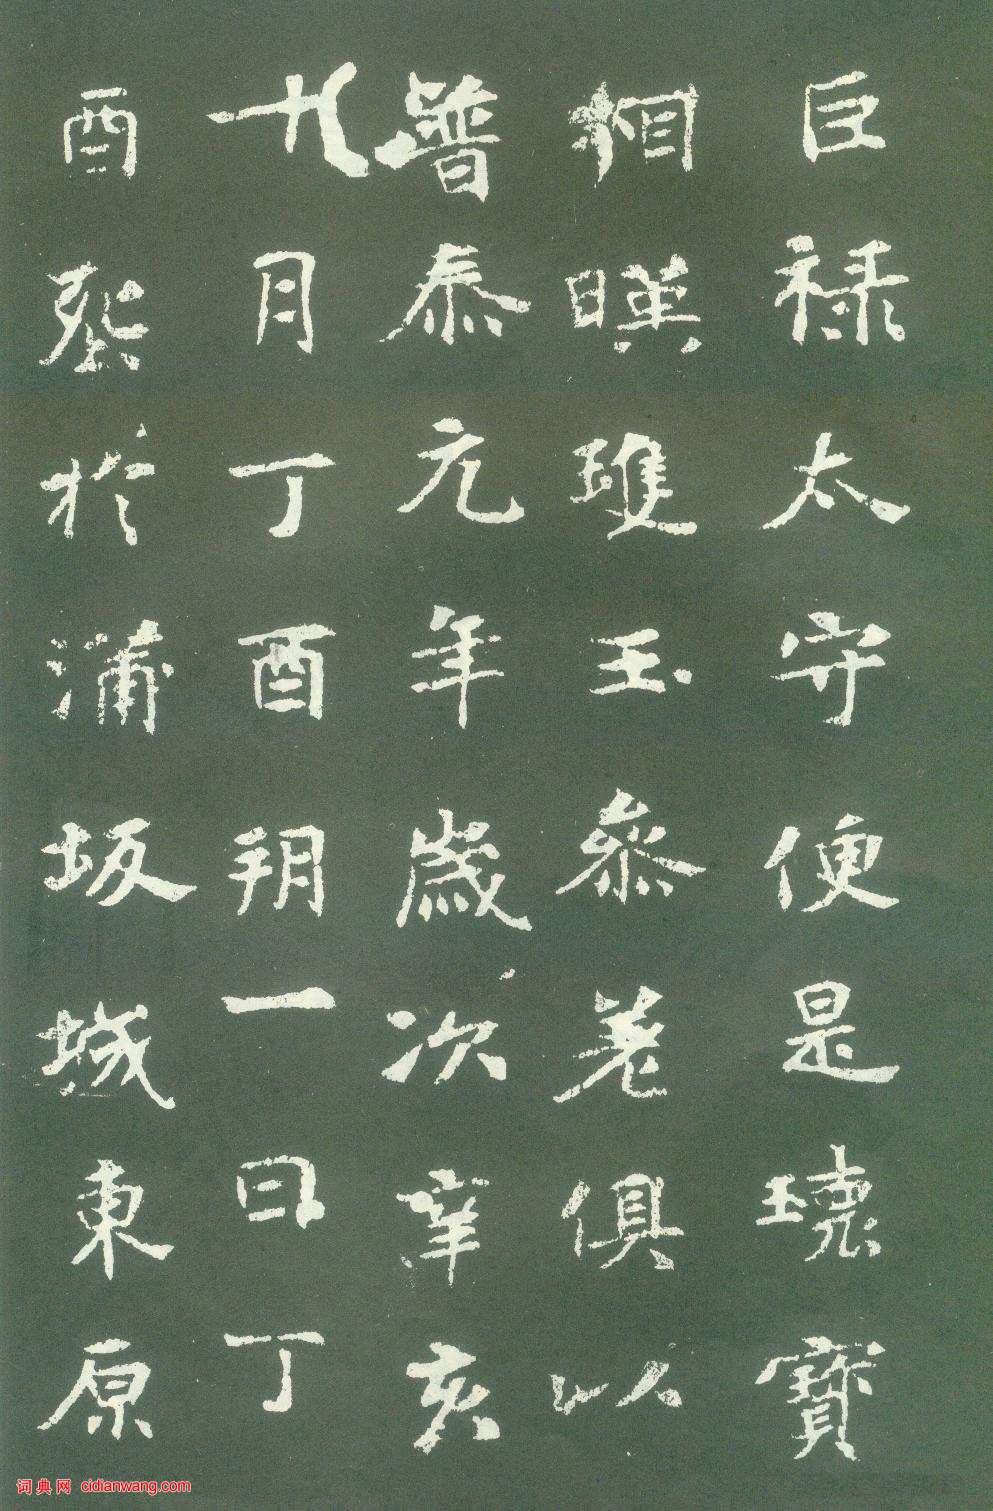 巨祿太守便是瓌寶
相暎瓊玉參差俱以
普泰元年歲次辛亥
十月丁酉朔一日丁
酉葬於蒲坂城東原
词典网 cidianwang.com